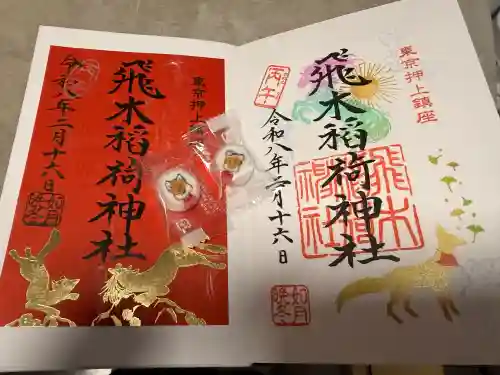 東京押上鎮座
飛木稲荷神社
丙午
令和八年二月十六日
飛木稲荷神社
如月
晩冬
東京押上鎮座
飛木稲荷神社
令和八年二月十六日
如月
晩冬